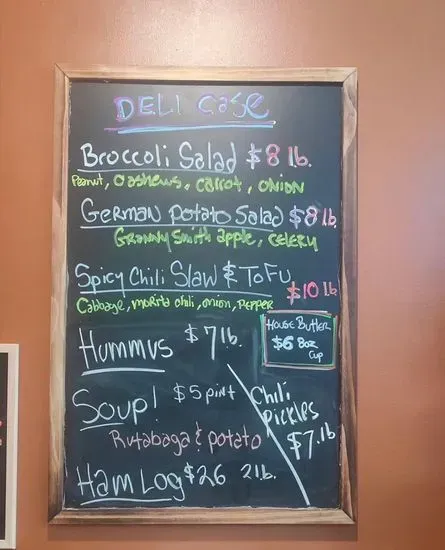 DELI CASE
Broccoli Salad $8 lb.
Peanut, cashews, carrot, onion
GERMAN potato Salad $8 lb
GRANNY Smith apple, CELERY
Spicy Chili Slaw & ToFu
$10 lb
Cabbage, morita chili, onion, PEPPER
House Butter
$6 8oz
Cup
Hummus $7 lb.
Soup! $5 pint
Rutabaga & potato
Chili
pickles
$7.lb
Ham Log $26 2lb.